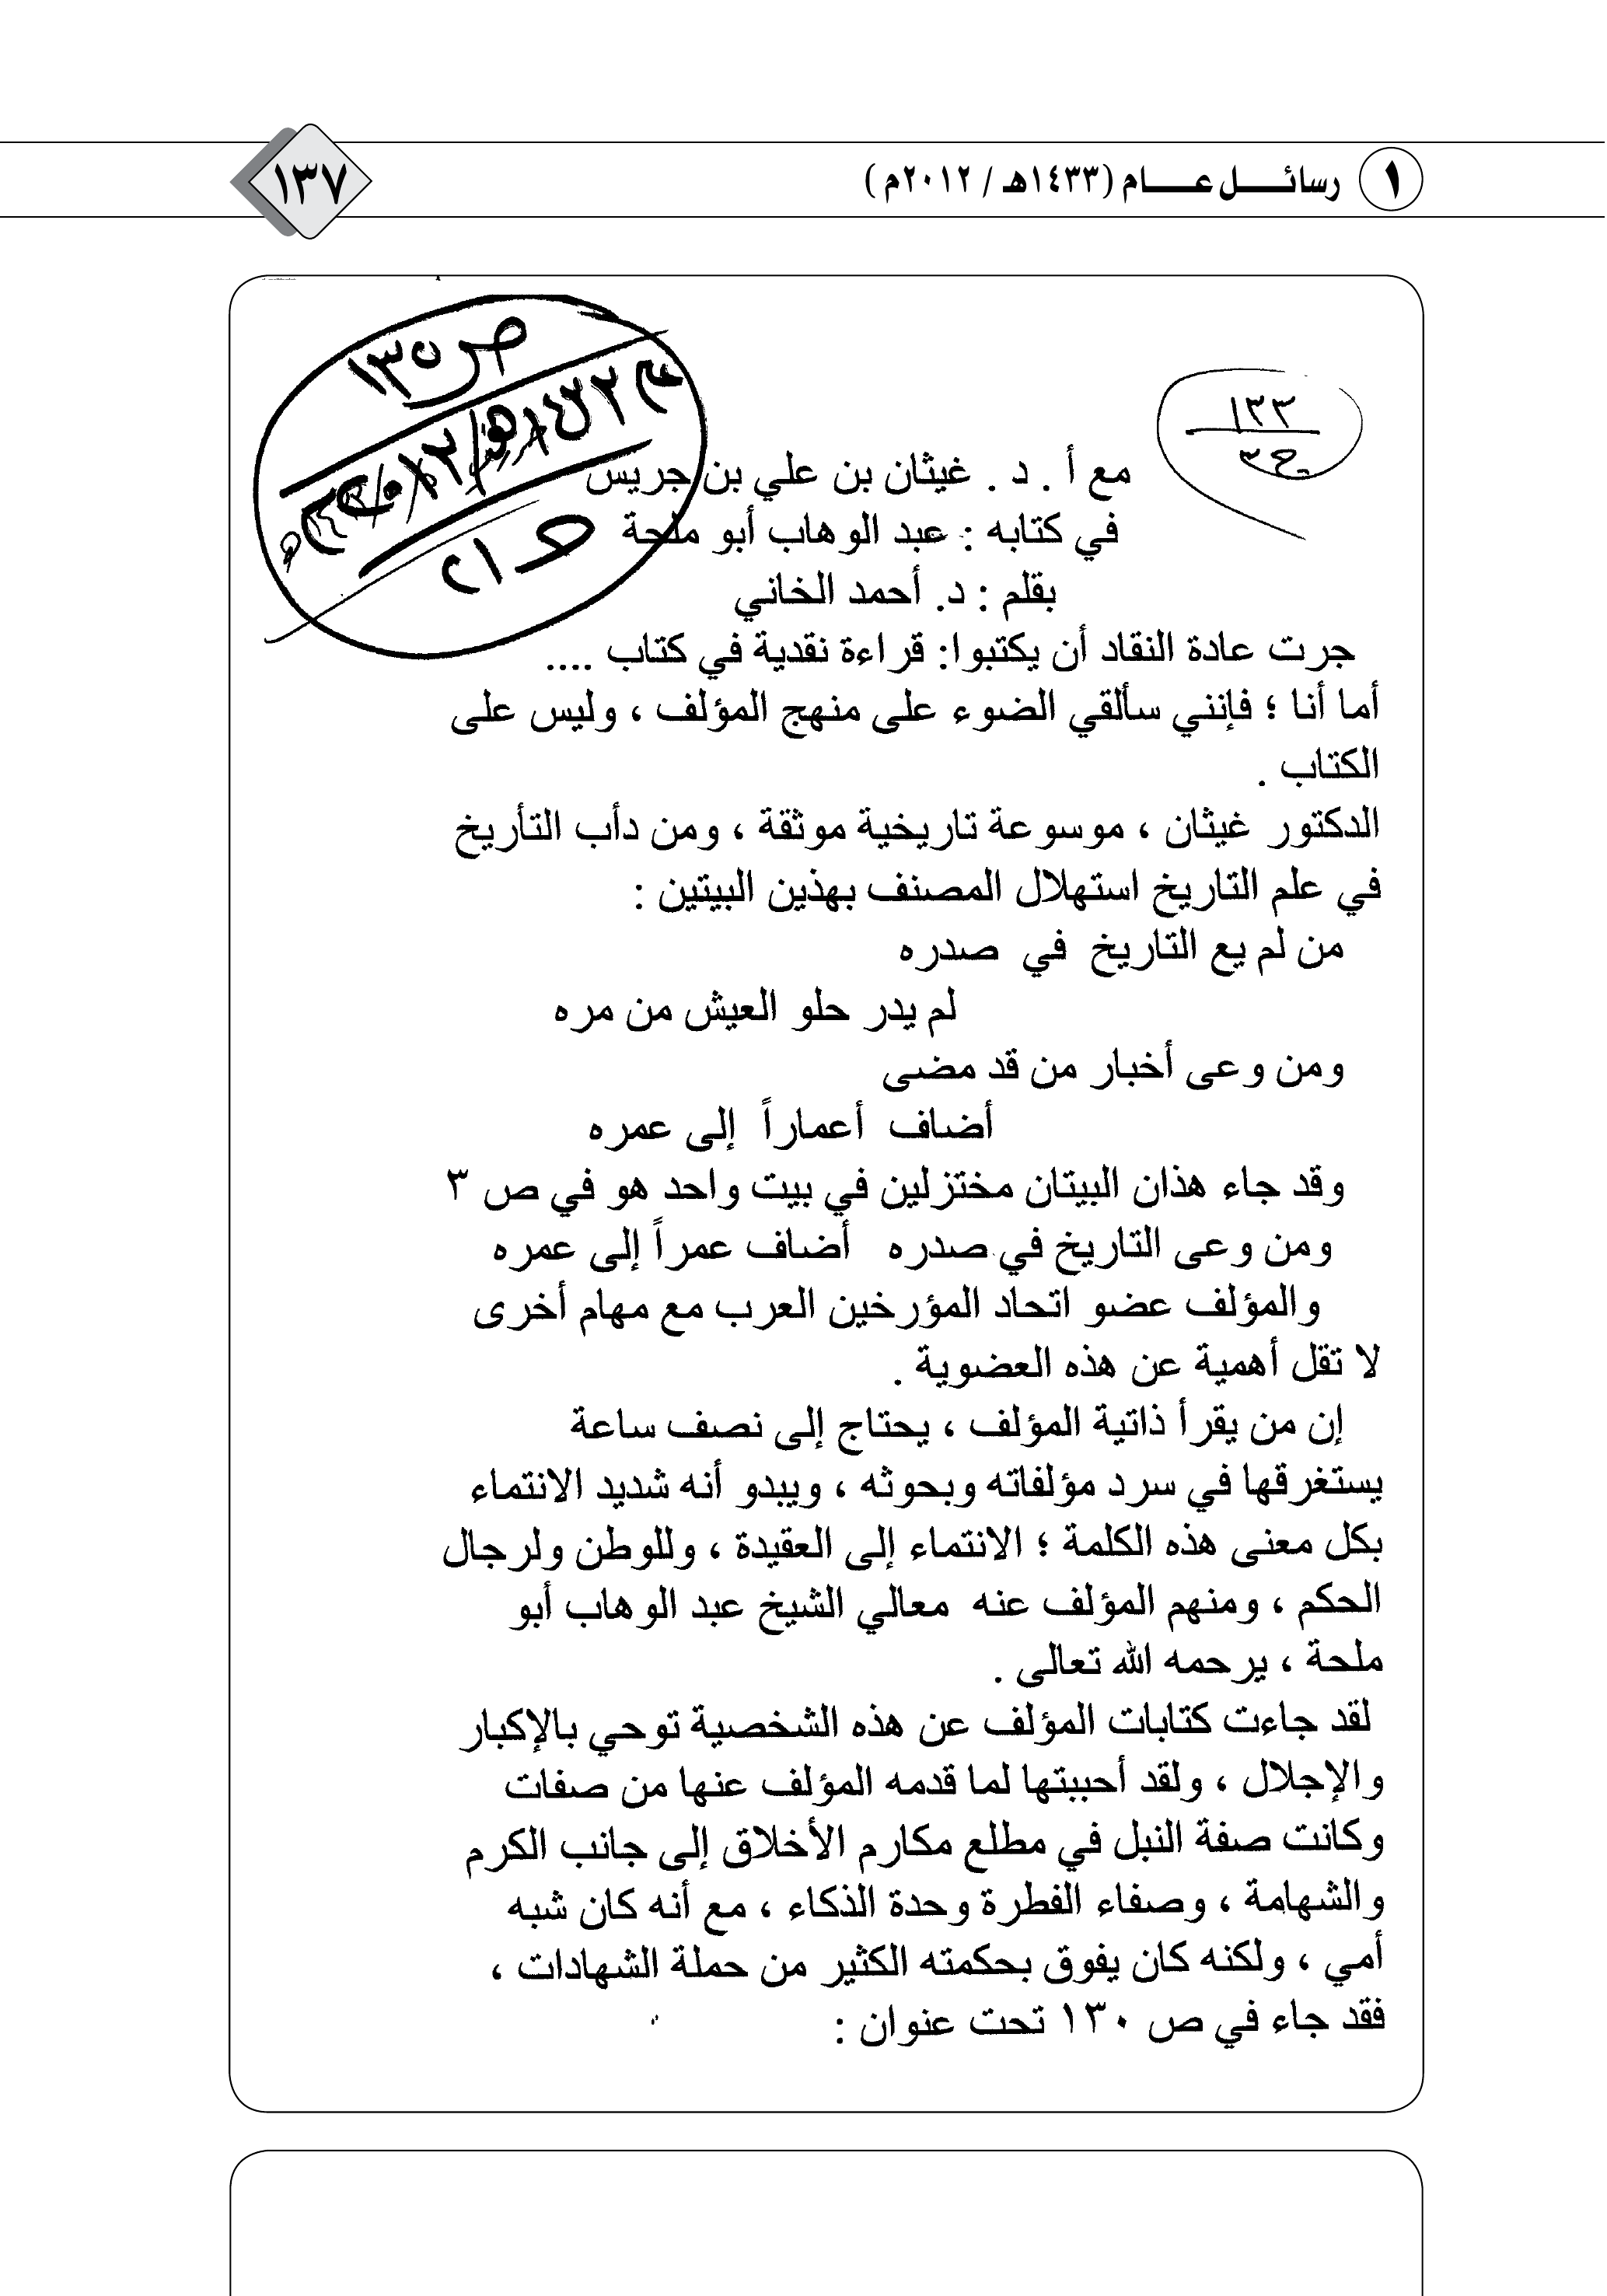 ١ رسائل عام (١٤٣٣هـ / ٢٠١٢م) ١٣٧
ص ١٣٥
١٣٣
ح ٣
مع أ . د . غيثان بن علي بن جريس
في كتابه : عبد الوهاب أبو ملحة
بقلم : د. أحمد الخاني
جرت عادة النقاد أن يكتبوا: قراءة نقدية في كتاب ....
أما أنا ؛ فإنني سألقي الضوء على منهج المؤلف ، وليس على
الكتاب .
الدكتور غيثان ، موسوعة تاريخية موثقة ، ومن دأب التأريخ
في علم التاريخ استهلال المصنف بهذين البيتين :
من لم يع التاريخ في صدره
لم يدر حلو العيش من مره
ومن وعى أخبار من قد مضى
أضاف أعماراً إلى عمره
وقد جاء هذان البيتان مختزلين في بيت واحد هو في ص ٣
ومن وعى التاريخ في صدره أضاف عمراً إلى عمره
والمؤلف عضو اتحاد المؤرخين العرب مع مهام أخرى
لا تقل أهمية عن هذه العضوية .
إن من يقرأ ذاتية المؤلف ، يحتاج إلى نصف ساعة
يستغرقها في سرد مؤلفاته وبحوثه ، ويبدو أنه شديد الانتماء
بكل معنى هذه الكلمة ؛ الانتماء إلى العقيدة ، وللوطن ولرجال
الحكم ، ومنهم المؤلف عنه معالي الشيخ عبد الوهاب أبو
ملحة ، يرحمه الله تعالى .
لقد جاءت كتابات المؤلف عن هذه الشخصية توحي بالإكبار
والإجلال ، ولقد أحببتها لما قدمه المؤلف عنها من صفات
وكانت صفة النبل في مطلع مكارم الأخلاق إلى جانب الكرم
والشهامة ، وصفاء الفطرة وحدة الذكاء ، مع أنه كان شبه
أمي ، ولكنه كان يفوق بحكمته الكثير من حملة الشهادات ،
فقد جاء في ص ١٣٠ تحت عنوان :